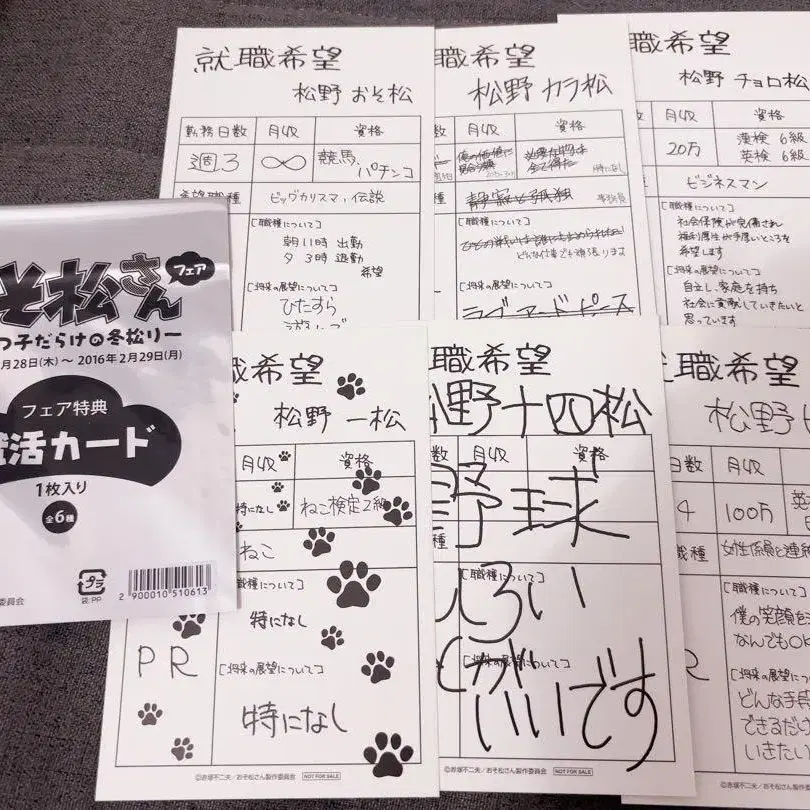 就職希望
松野 おそ松
勤務日数 月収 資格
週3 ∞ 競馬、
パチンコ
希望職種 ビッグカリスマ, 伝説
[職種について]
朝11時 出勤
夕 3時 退勤
希望
[将来の展望について]
ひたすら
職希望
松野 カラ松
特になし
静寂と孤独 事務員
[職種について]
どんな仕事でも頑張ります
[将来の展望について]
職希望
松野 チョロ松
月収 資格
20万 漢検 6級
英検 6級
ビジネスマン
[職種について]
社会保険が完備され
福利厚生が手厚いところを
希望します
[将来の展望について]
自立し、家庭を持ち
社会に貢献していきたいと
思っています
そ松さん
フェア
つ子だらけの冬松りー
月28日(木)～2016年2月29日(月)
フェア特典
活カード
1枚入り
全6種
プラ
袋:PP
2 900010 510613
委員会
職希望
松野 一松
月収 資格
特になし ねこ検定2級
ねこ
[職種について]
特になし
PR
[将来の展望について]
特になし
©赤塚不二夫/おそ松さん製作委員会 NOT FOR SALE
職希望
松野十四松
月収 資格
野球
種
[職種について]
[将来の展望について]
いいです
©赤塚不二夫/おそ松さん製作委員会 NOT FOR SALE
職希望
松野
日数 月収
4 100万 英
職種 女性係員と連絡
[職種について]
僕の笑顔を
なんでもOK
[将来の展望について]
どんな手段
できるだけ
いきたい
©赤塚不二夫/おそ松さん